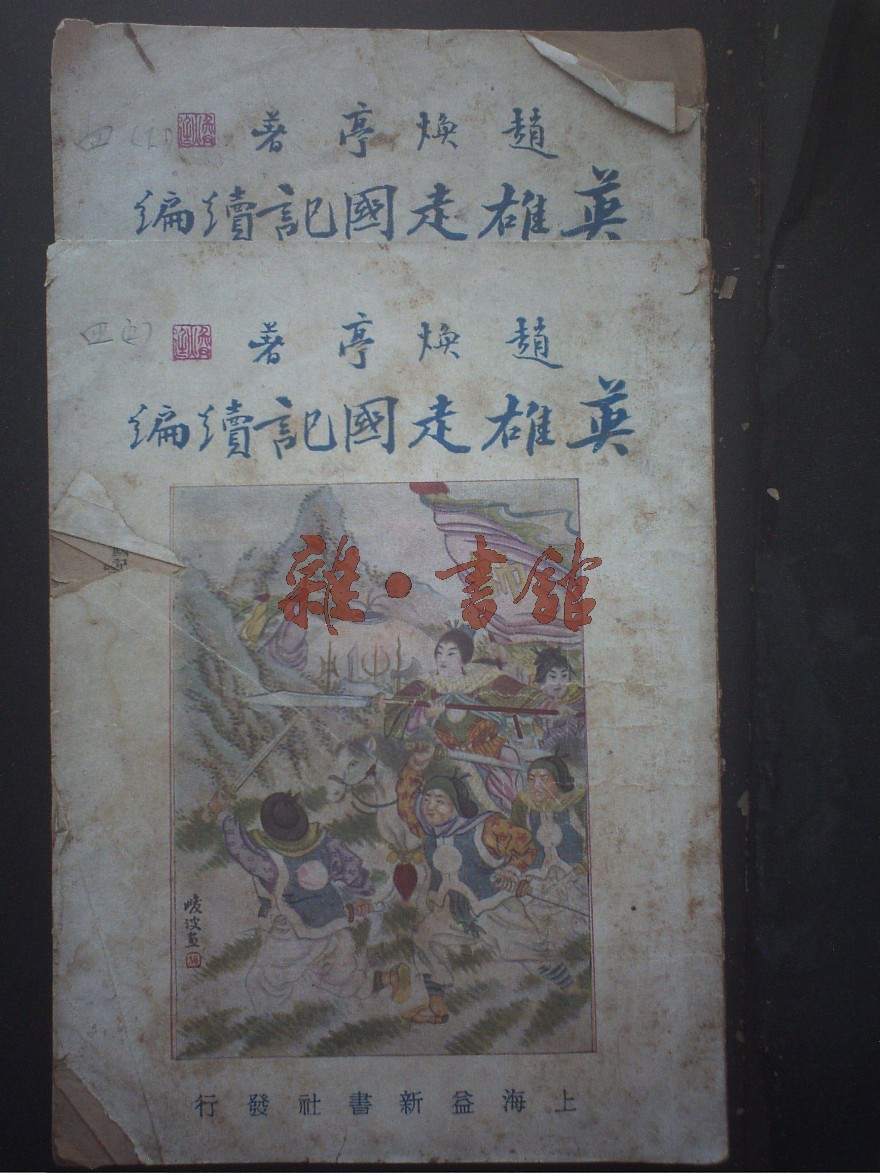 趙煥亭著
英雄走國記續編
趙煥亭著
英雄走國記續編
雜·書館
帅
上海益新書社發行